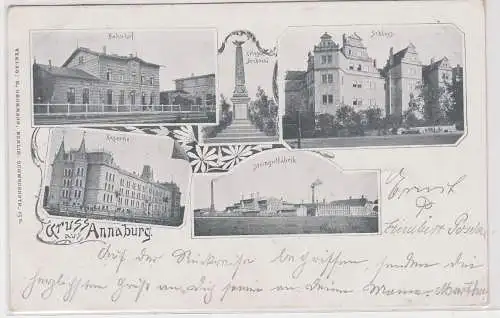 Bahnhof
Krieger
Denkmal
Schloss
Kaserne
Steingutfabrik
Gruss
aus Annaburg.
VERLAG
BERLIN
Ernst
Auf der Rückreise begriffen senden die
herzlichsten Grüße an Dich sowie an Deine Mama Martha